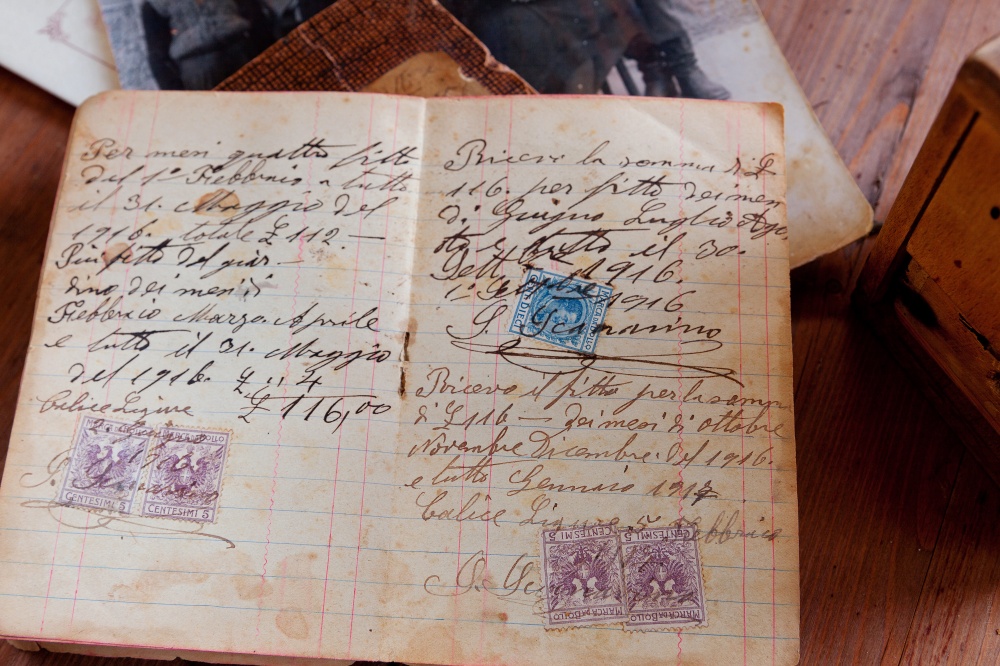 Per mesi quattro fitto
del 1° Febbraio a tutto
il 31. Maggio del
1916. totale £ 112 —
Più fitto del giar-
dino dei mesi di
Febbraio Marzo. Aprile
e tutto il 31. Maggio
del 1916. £ " 4
£ 116,00
Calice Ligure
1916
MARCA DA BOLLO
CENTESIMI 5
CENTESIMI 5
Ricevo la somma di £
116. per fitto dei mesi
di Giugno Luglio Ago
sto e tutto il 30.
Settembre 1916.
1° 1916
MARCA DA BOLLO
CENT. DIECI
Ricevo il fitto per la somma
di £ 116 — dei mesi di ottobre
Novenbre Dicembre. del 1916.
e tutto Gennaio 1917
Calice Ligure 5 Febbraio
CENTESIMI 5
CENTESIMI 5
MARCA DA BOLLO
MARCA DA BOLLO